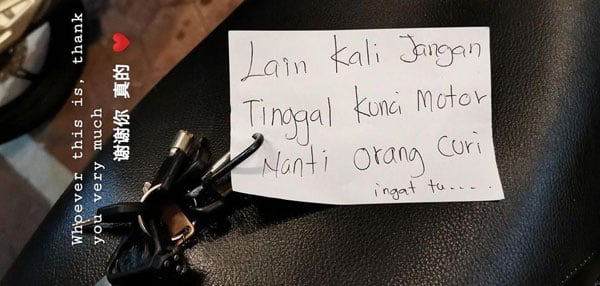 Lain Kali Jangan
Tinggal Kunci Motor
Nanti Orang Curi
ingat tu.....
Whoever this is, thank
you very much
谢谢你 真的 ❤️